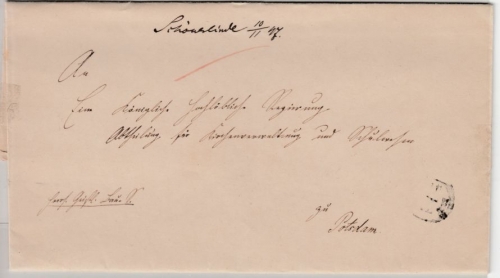 Schönerlinde 10/11 47.
An
Eine Königliche Hochlöbliche Regierung
Abtheilung für Kirchenverwaltung und Schulwesen
zu
Potsdam